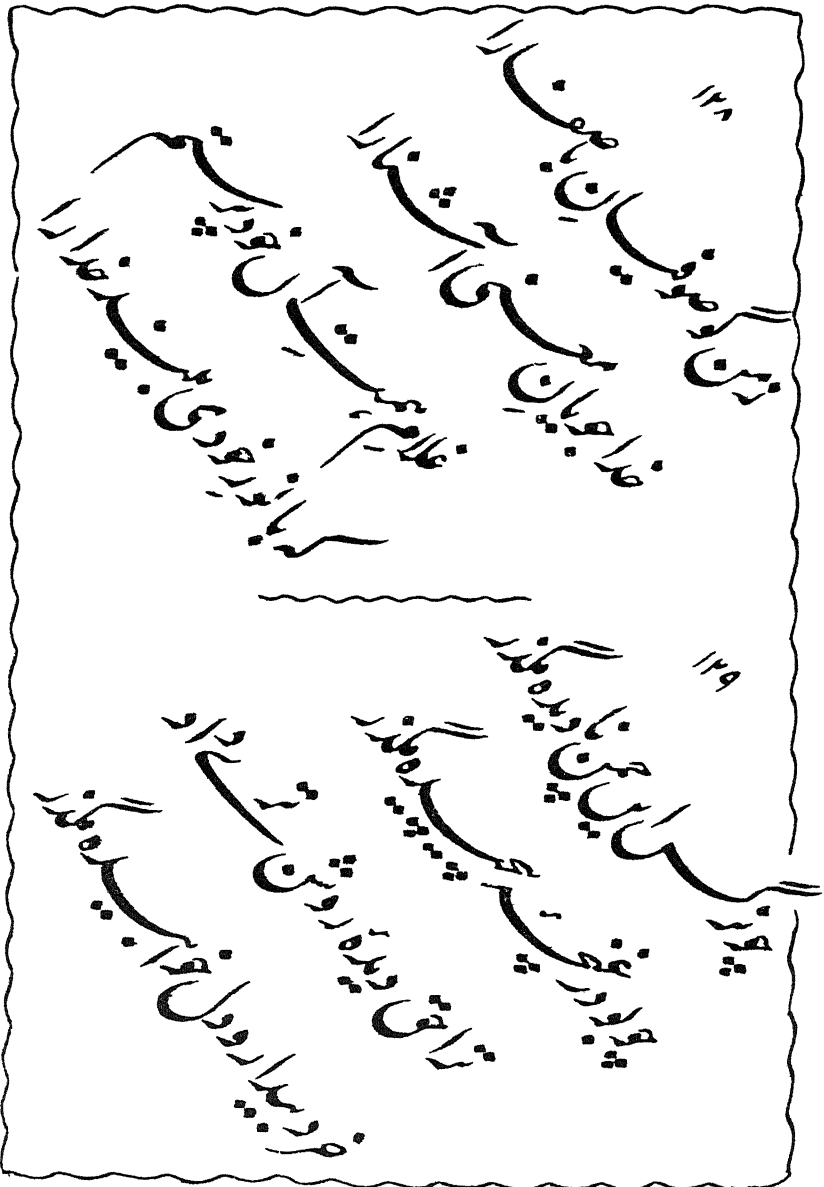 ۱۲۸
ز من گو صوفیانِ با صفا را
خدا جویانِ معنی آشنا را
غلامِ ہمتِ آں خود پرستم
کہ با نورِ خودی بیند خدا را
۱۲۹
چو نرگس ایں چمن نادیدہ مگذر
چو بو در غنچۂ پیچیدہ مگذر
ترا حق دیدۂ روشن ترے داد
خرد بیدار و دل خوابیدہ مگذر